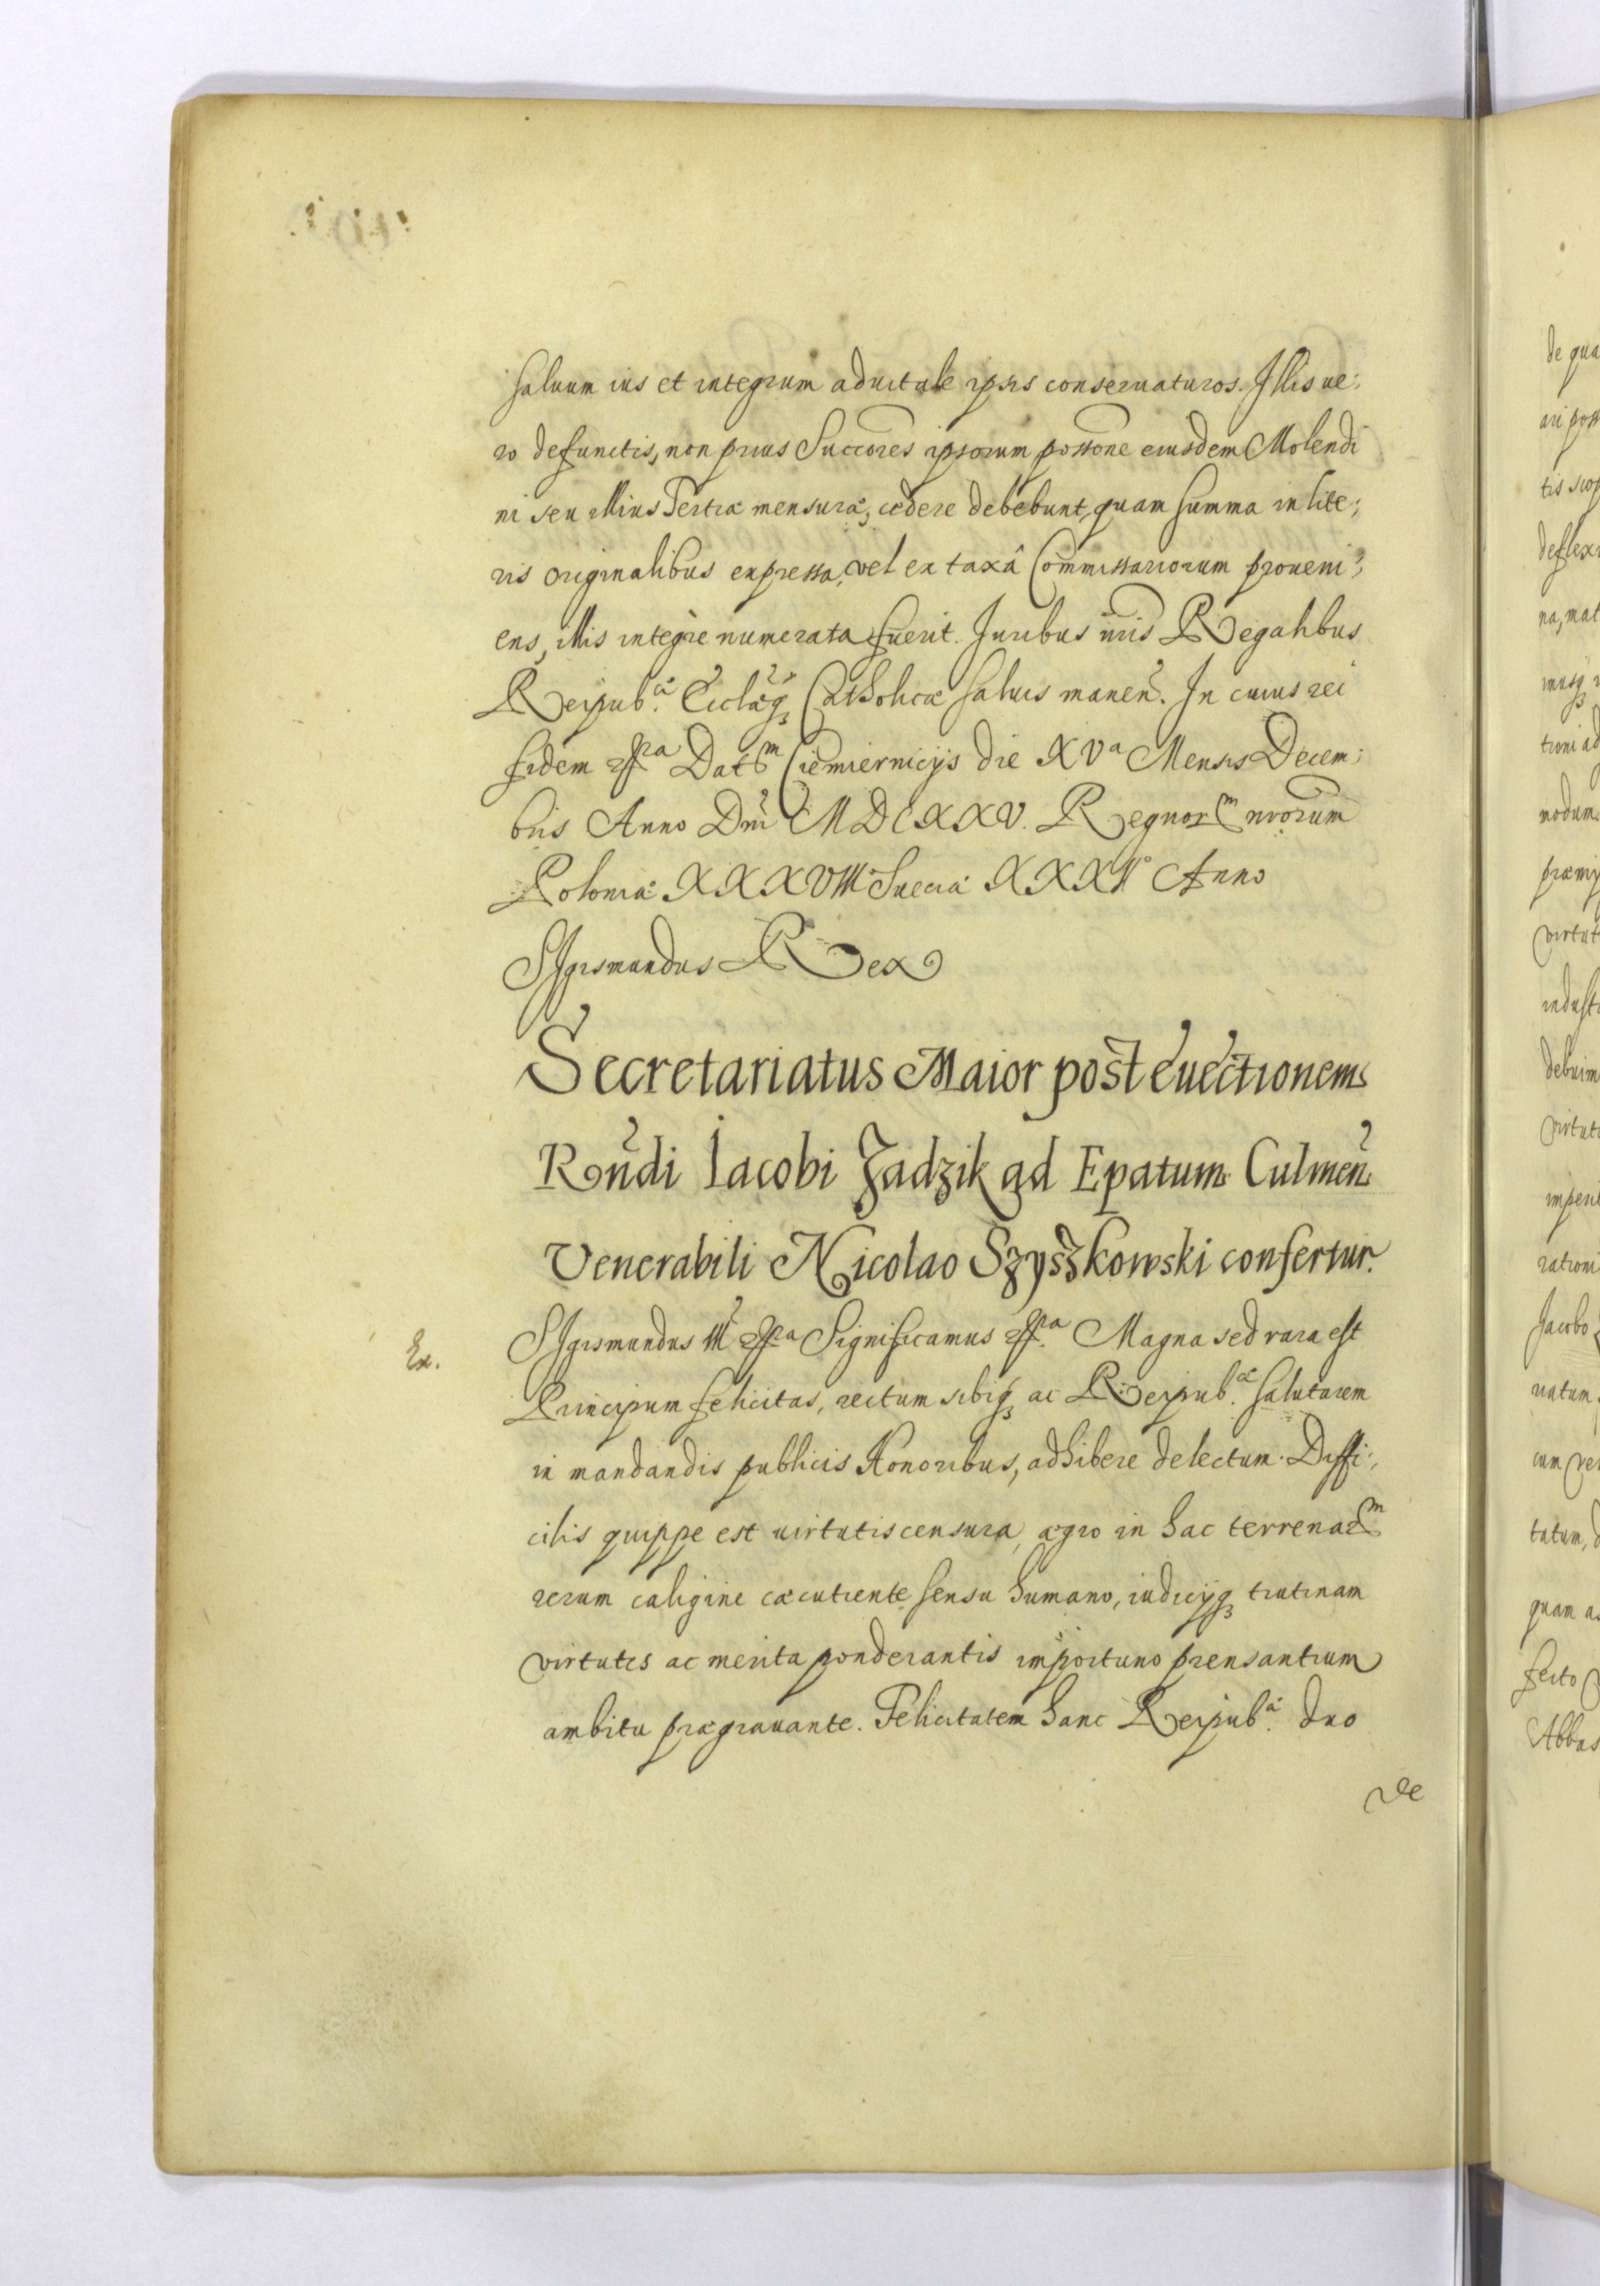 saluum ius et integrum aduitale ipsis conseruaturos. Illis ue:
ro defunctis, non prius Succores ipsorum possone eiusdem Molendi
ni seu illius Tertiæ mensuræ, cedere debebunt, quam summa in lite:
ris originalibus expressa, vel ex taxâ Commissariorum proueni:
ens, illis integre numerata fuerit. Iuribus nris Regalibus
Reipub.æ Ecclæq3 Catholicæ saluis manen. In cuius rei
fidem
Dat
Ciemiernicijs die XVa Mensis Decem:
bris Anno Dni MDCXXV. Regnorm nrorum
Poloniæ XXXVIII Sueciæ XXXII Anno
Sigismundus Rex
Secretariatus Maior post euectionem
Rndi Iacobi Zadzik ad Epatum Culmen
Venerabili Nicolao Szyszkowski confertur.
Ex.
Sigismundus III
Significamus
Magna sed rara est
Principum felicitas, rectum sibiq3 ac Reipub.æ salutarem
in mandandis publicis Honoribus, adhibere delectum. Diffi:
cilis quippe est uirtutis censura, ægro in hac terrenarm
rerum caligine cæcutiente sensu humano, iudicijq3 trutinam
virtutes ac merita ponderantis importuno prensantium
ambitu prægrauante. Felicitatem hanc Reipub.æ duo
de